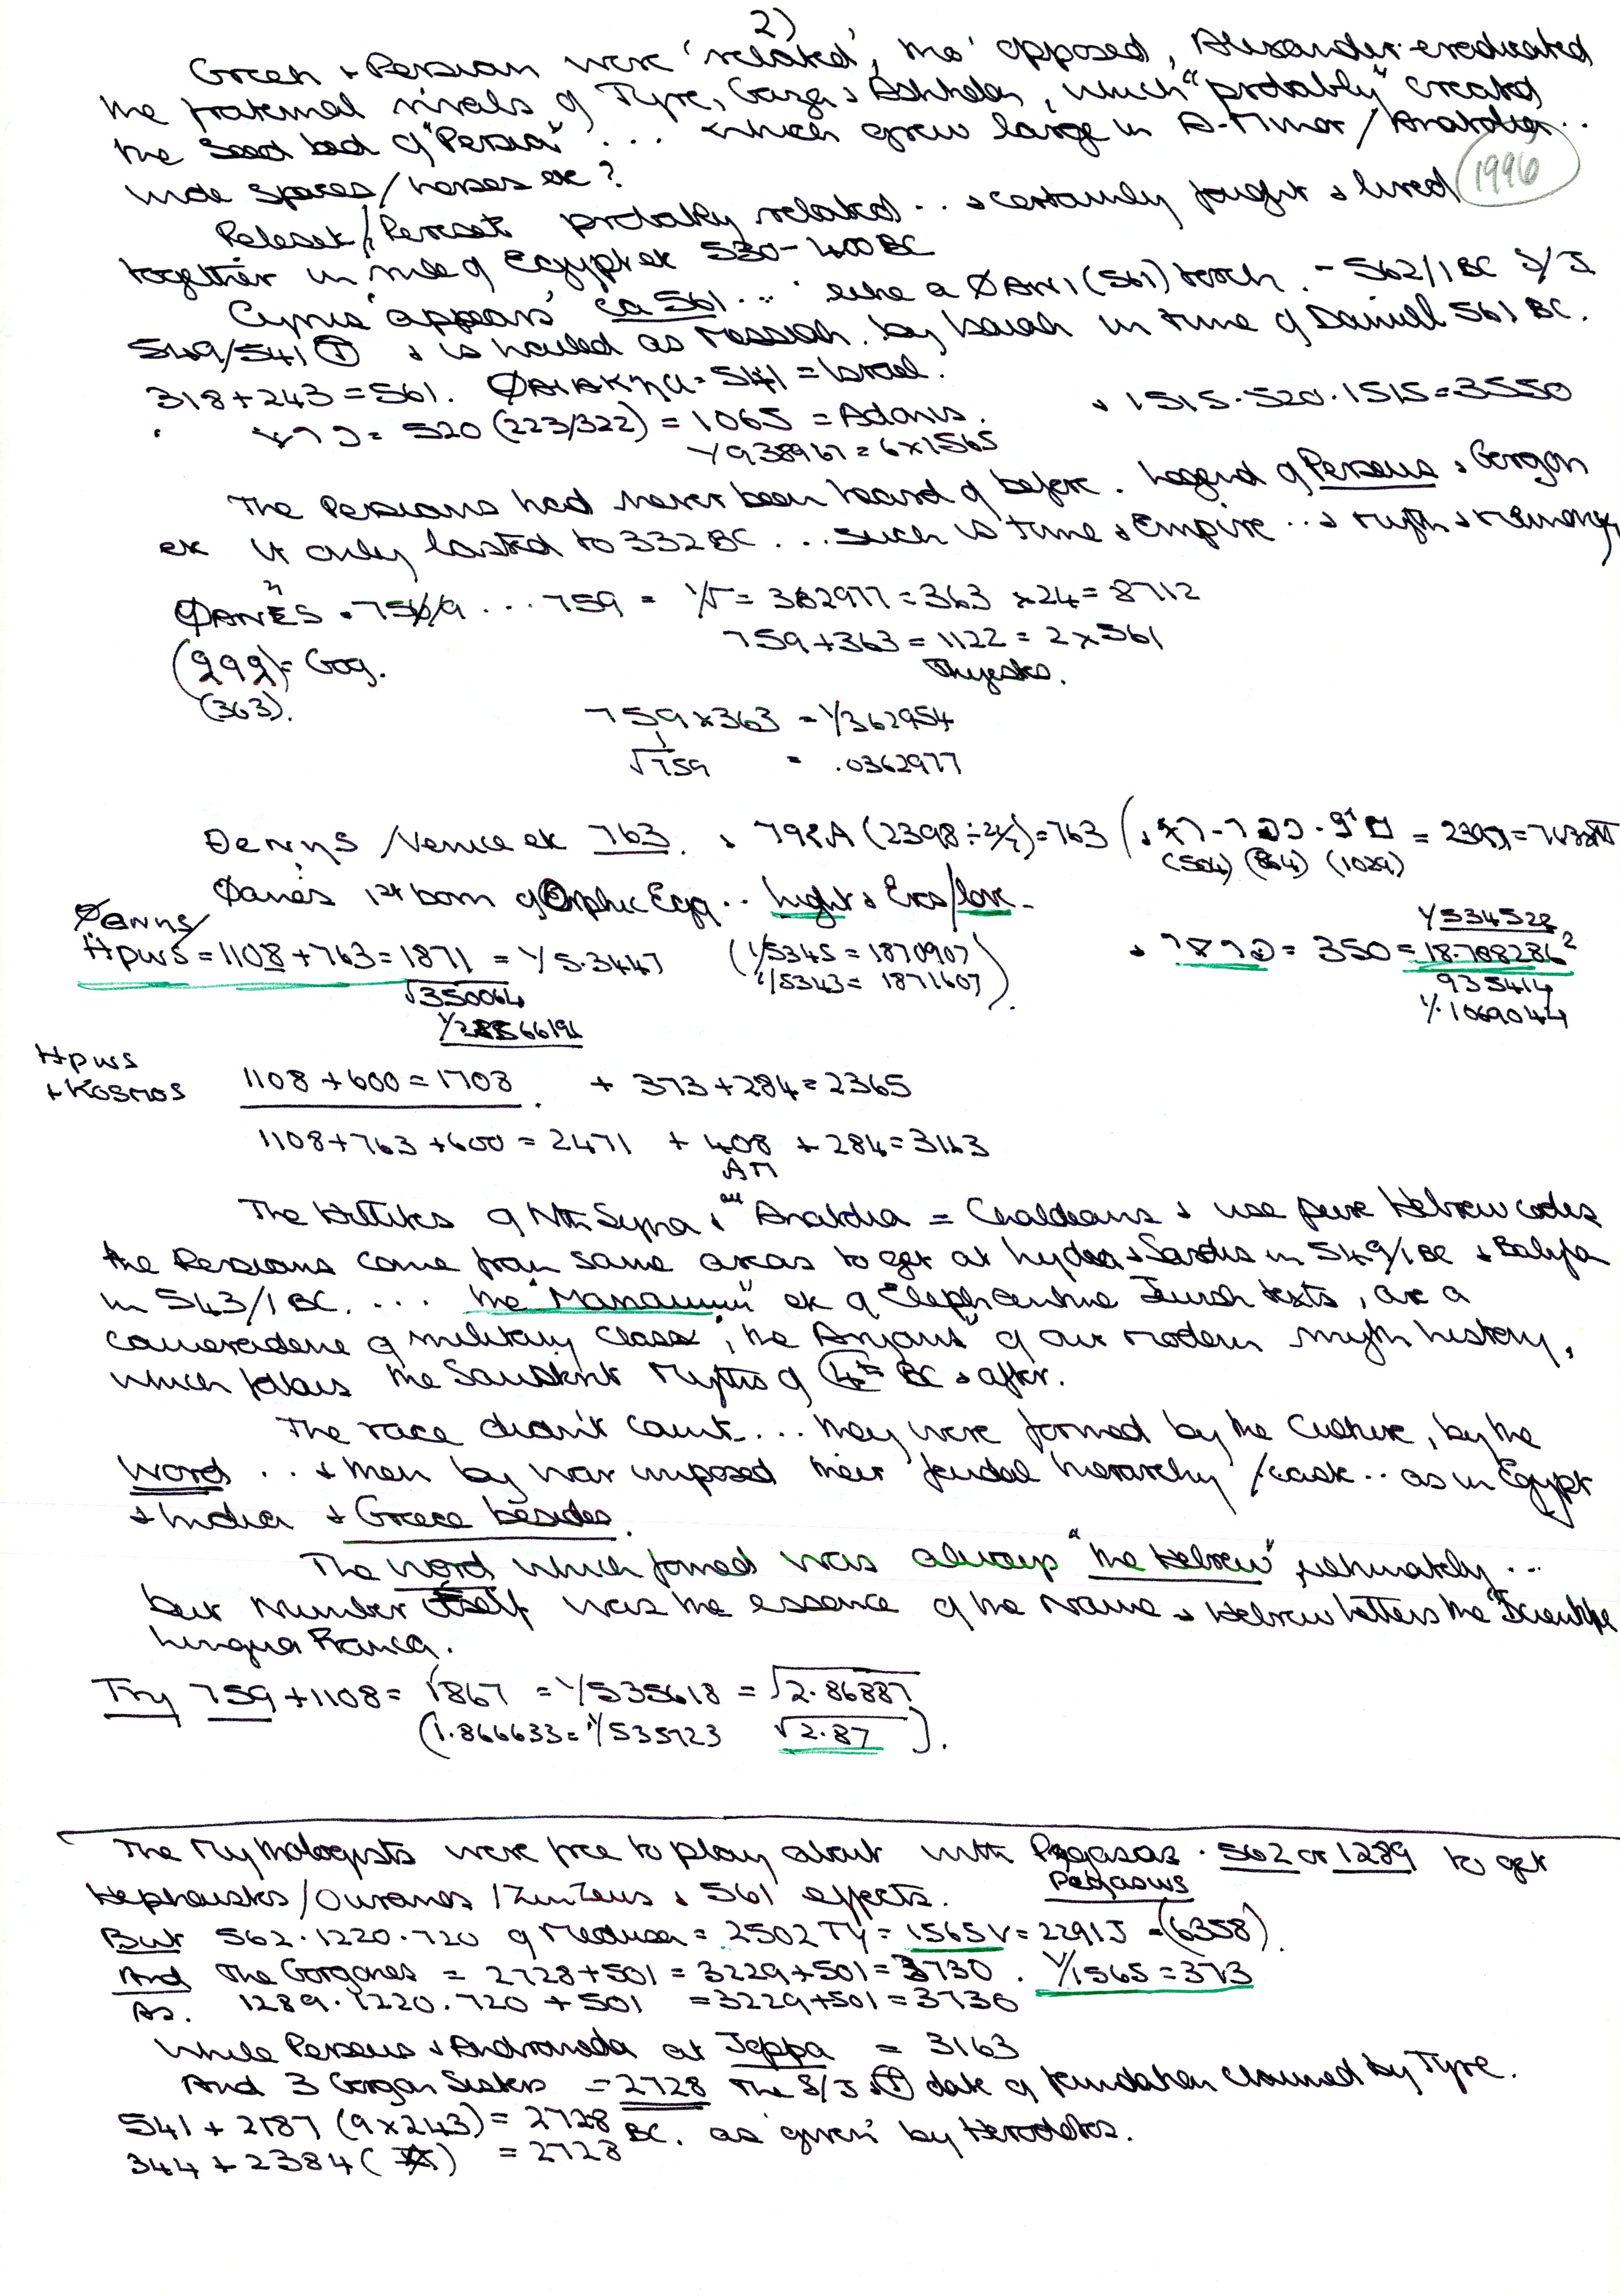 2)
Greek + Persian were 'related', tho' opposed, Alexander eradicated
the fraternal rivals of Tyre, Gaza & Ashkelon, which "probably" created
the seed bed of "Persia" ... which grew large in A-Minor / Anatolia..
wide spaces/horses etc?
1996
Peleset/Pereset probably related .. & certainly fought & lived
together in rule of Egypt etc 530-400 BC
Cyrus 'appears' ca 561 ... like a ØANI (561) torch. - 562/1 BC S/J
549/541 & is hailed as Messiah. by Isaiah in time of Daniel 561 BC.
318+243=561. = 541 = Israel.
= 520 (223/322) = 1065 = Adonis. & 1515.520.1515=3550
1/938967 = 6x1565
The Persians had never been heard of before. Legend of Perseus & Gorgon
etc It only lasted to 332 BC ... such is time & Empire .. & myth & memory
ØANES . 756/9 ... 759 = 1/√ = 362977 = 363 x24 = 8712
(292)= Gog. 759+363 = 1122 = 2x561
(363). Thyestes.
759x363 = 1/362954
√759 = .0362977
Øenns / Venice etc 763. (2398÷ )=763
(504) (864) (1029)
Øanes 1st born of Orphic Egg .. Light & Eros/love.
Øanns
Hpws = 1108+763=1871 = 1/5.3447 (1/5345 = 1870907 & = 350 = 18.708286²
1/534522
√350064 1/5343 = 1871607) 935414
1/28566196 1/.1069044
Hpws
+Kosmos 1108+600=1708 . + 373+284=2365
1108+763+600 = 2471 + 408 + 284=3163
AM
The Hittites of Nth Syria & all Anatolia = Chaldeans & use pure Hebrew codes
the Persians come from same areas to get at Lydia & Sardis in 549/1 BC & Babylon
in 543/1 BC. ... the "Marianni" etc of Elephantine Jewish texts, are a
cameraderie of military class, the "Aryans" of our modern myth history,
which follows the Sanskrit Myths of 4th BC & after.
The race didn't count... they were formed by the Culture, by the
Word .. & then by war imposed their 'feudal hierarchy' /caste .. as in Egypt
& India & Greece besides.
The word which formed was always "the Hebrew", ultimately ...
but Number itself was the essence of the Name & Hebrew letters the "Scientific
Lingua Franca.
Try 759+1108 = 1867 = 1/535618 = √2.86887
(1.866633 = 1/535723 √2.87 ).
The Mythologists were free to play about with Pegasas . 562 or 1289 to get
Pegasus
Hephaistos/Ouranos /Zeus & 561 effects.
But 562.1220.720 of Medusa = 2502 TY = 1565 V = 2291 J = (6358).
And The Gorgones = 2728+501 = 3229+501 = 3730 . 1/1565 = 373
As. 1289.1220.720 + 501 = 3229+501 = 3730
While Perseus & Andromeda at Joppa = 3163
And 3 Gorgon Sisters = 2728 the S/J & date of foundation claimed by Tyre.
541 + 2187 (9x243) = 2728 BC. as 'given' by Herodotos.
344 + 2384 ( ) = 2728